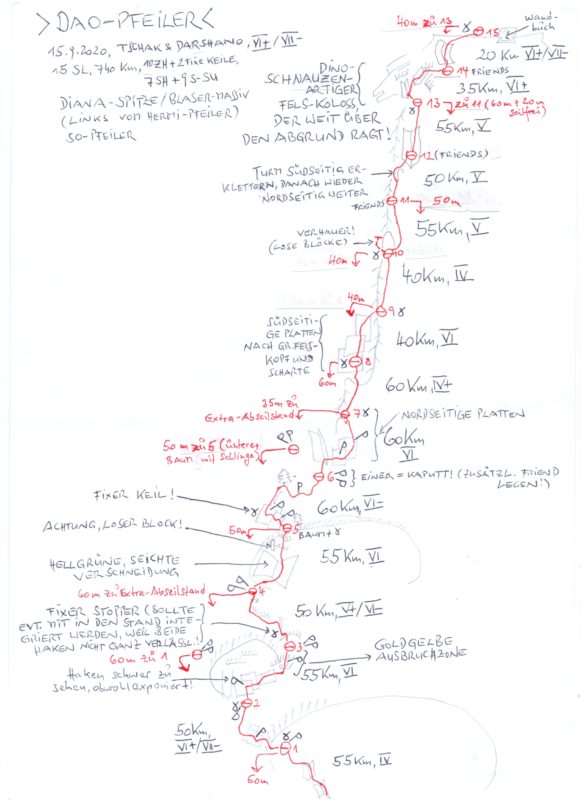 >DAO-PFEILER<
15.9.2020, TSCHAK & DARSHANO, VI+/VII-
15 SL, 740 Km, 10ZH + 2 FIXE KEILE,
7SH + 9 S-SU
DIANA-SPITZE/BLASER-MASSIV
(LINKS VOM HERMI-PFEILER)
SO-PFEILER
40m zu 13
15
Wand-
buch
20 Km VI+/VII-
14 FRIENDS
35Km, VI+
DINO-
SCHNAUZEN-
ARTIGER
FELS-KOLOSS
DER WEIT ÜBER
DEN ABGRUND RAGT!
13 zu 11 (60m + 20m
seilfrei)
55Km, V
12 (FRIENDS)
TURM SÜDSEITIG ER-
KLETTERN, DANACH WIEDER
NORDSEITIG WEITER
50Km, V
FRIENDS 11
50m
55Km, V
VERHAUER!
(LOSE BLÖCKE)
10
40m
40Km, IV
40m
9
SÜDSEITI-
GE PLATTEN
NACH GR. FELS-
KOPF UND
SCHARTE
40Km, VI
8
60m
60Km, IV+
35m zu
Extra-Abseilstand
7
NORDSEITIGE PLATTEN
50m zu 5 (unterer
Baum mit Schlinge)
60Km
VI
6
EINER = KAPUTT! (ZUSÄTZL. FRIEND
LEGEN!)
FIXER KEIL!
60Km, VI-
ACHTUNG, LOSER BLOCK!
50m
5
BAUM +
HELLGRÜNE, SEICHTE
VERSCHNEIDUNG
55Km, VI
60m zu Extra-Abseilstand
4
FIXER STOPPER (SOLLTE
EVT. MIT IN DEN STAND INTE-
GRIERT WERDEN, WEIL BEIDE
HAKEN NICHT GANZ VERLÄSSL.!)
50Km, V+/VI-
60m zu 1
3
GOLDGELBE
AUSBRUCHZONE
Haken schwer zu
sehen, obwohl exponiert!
55Km, VI
2
50Km,
VI+/VII-
1
60m
55Km, IV